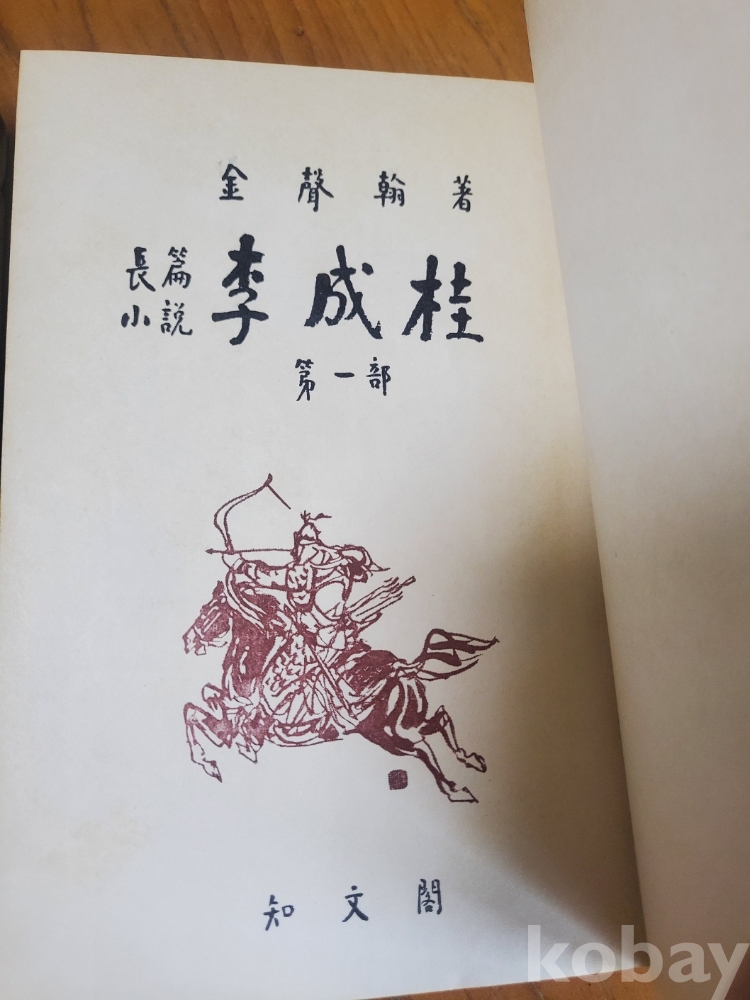 金聲翰著
長篇小説 李成桂
第一部
知文閣
kobay